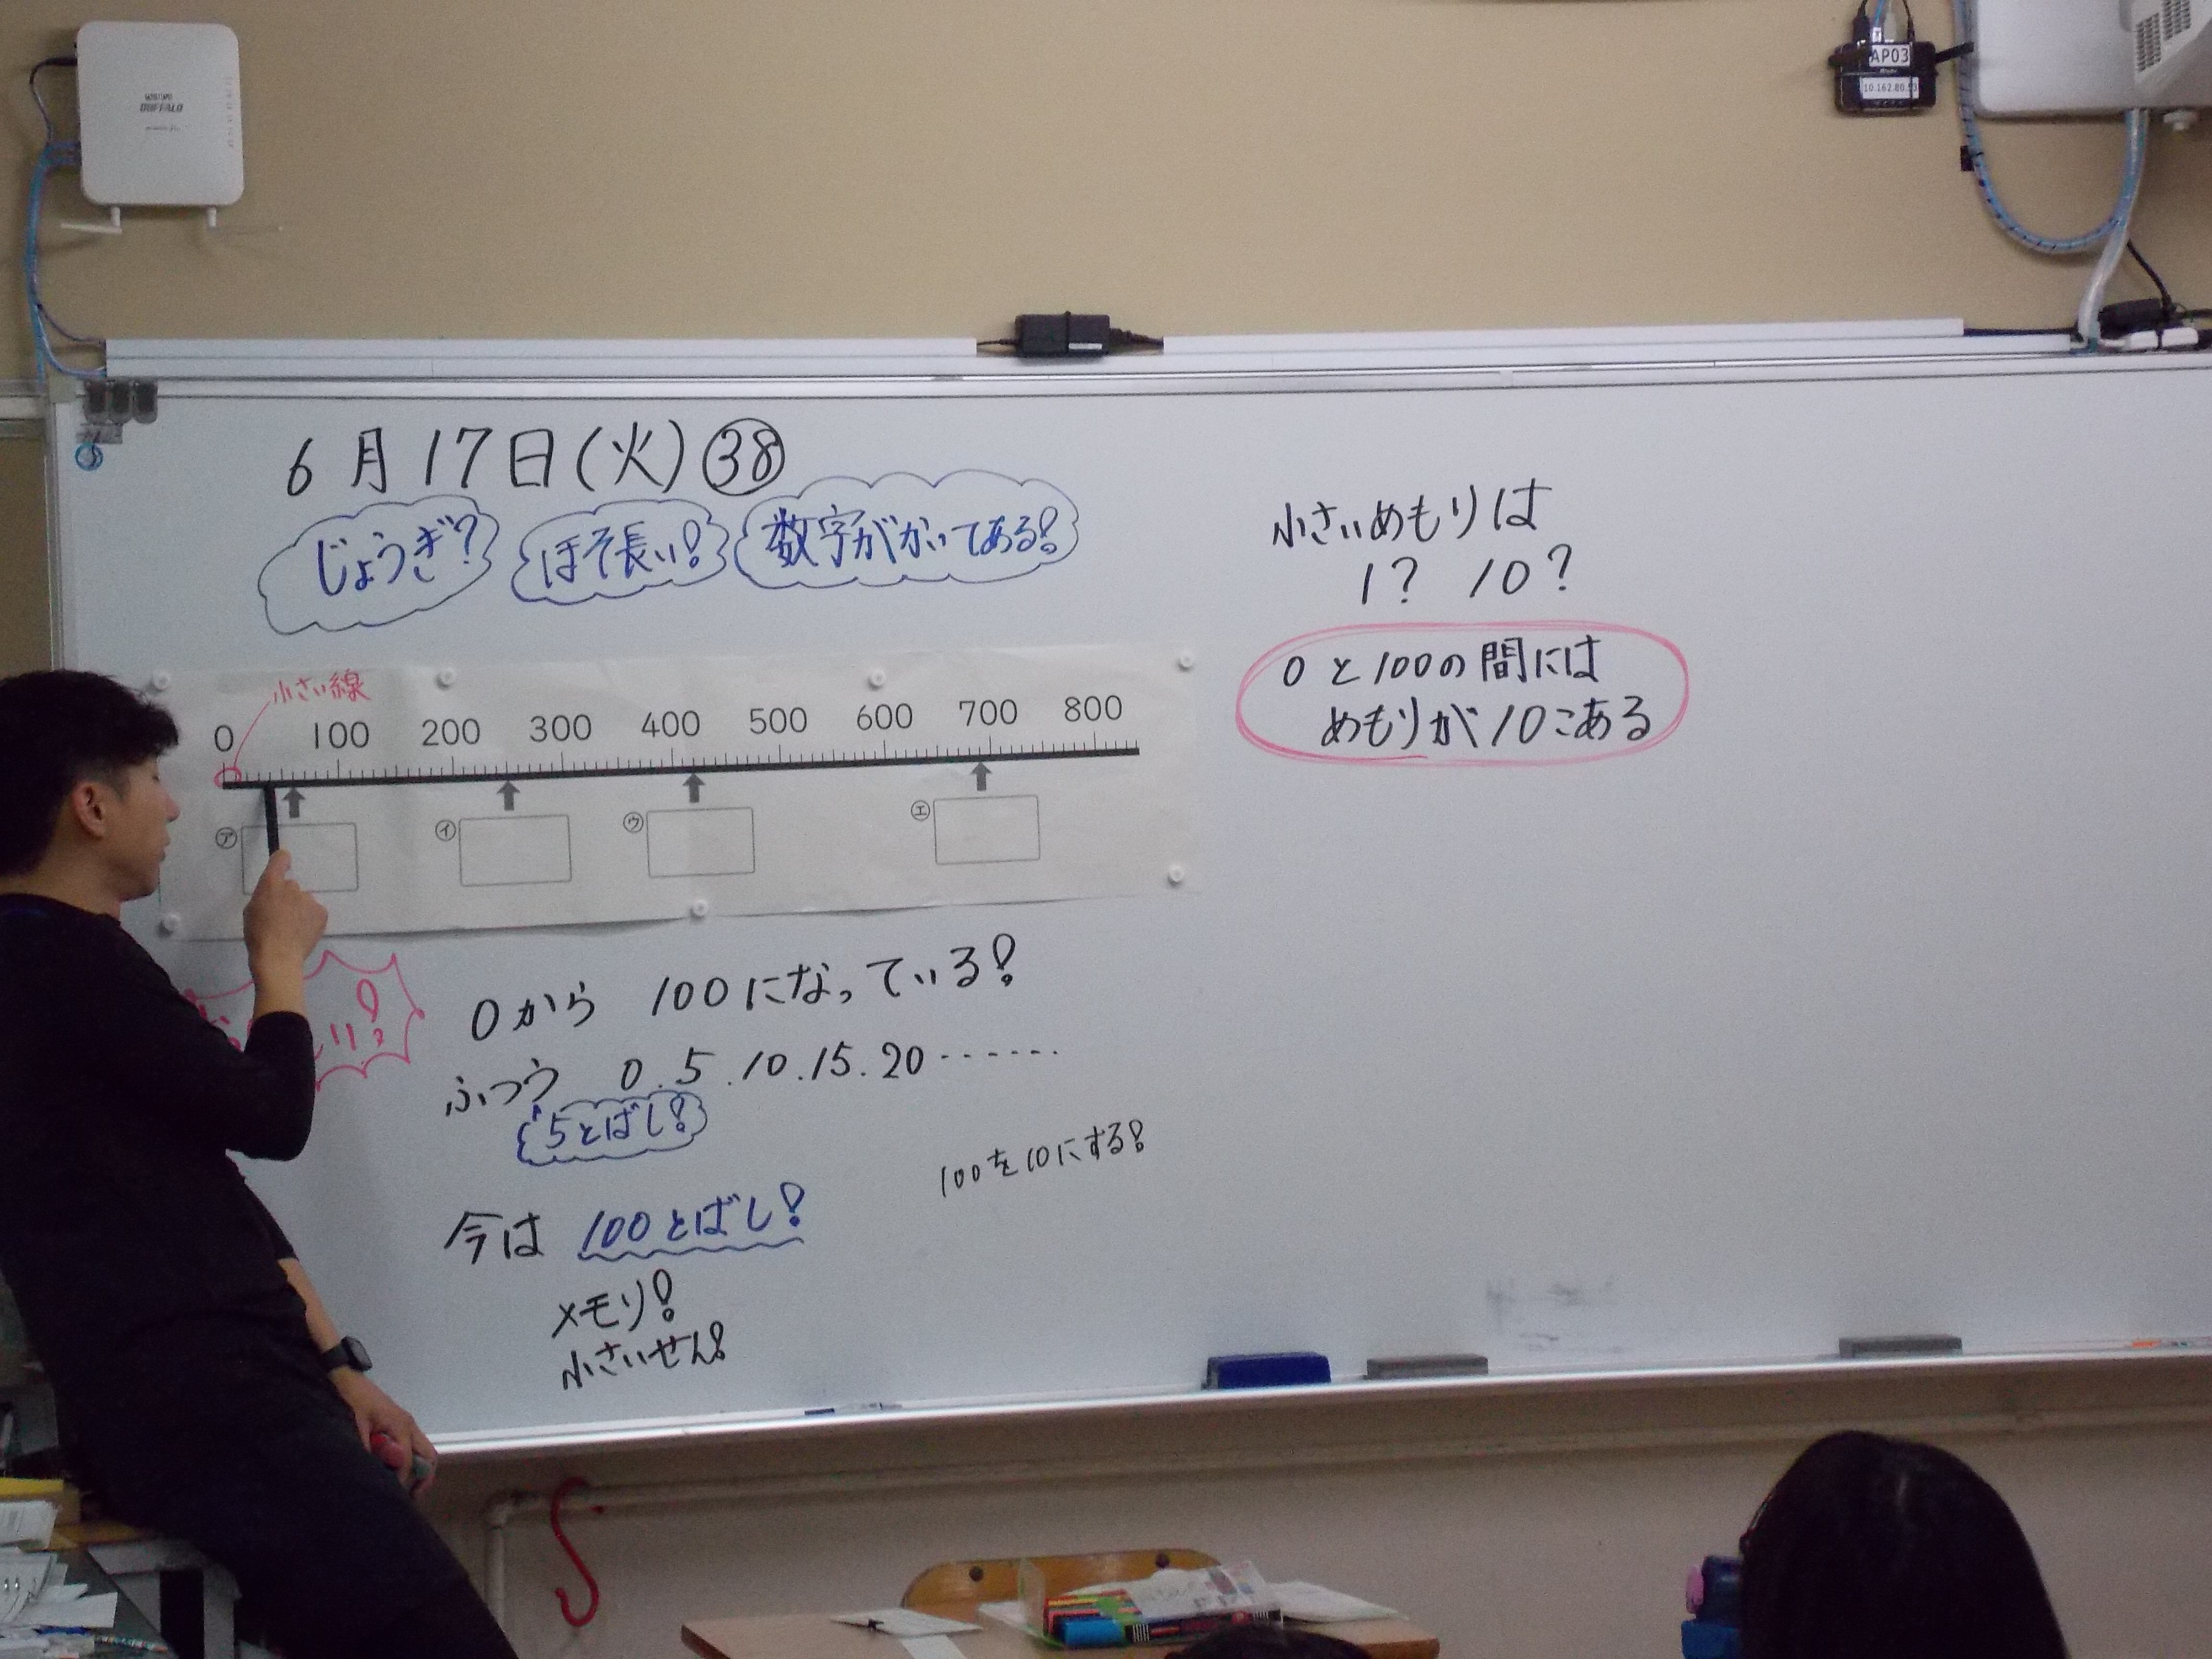 BUFFALO
AP03
6月17日(火)㊳
じょうぎ?
ほそ長い!
数字がかいてある!
小さい線
0 100 200 300 400 500 600 700 800
㋐ ㋑ ㋒ ㋓
0から 100になっている!
ふつう 0.5.10.15.20‥‥‥
5とばし!
今は 100とばし!
メモリ!
小さいせん!
100を10にする!
小さいめもりは
1? 10?
0と100の間には
めもりが10こある